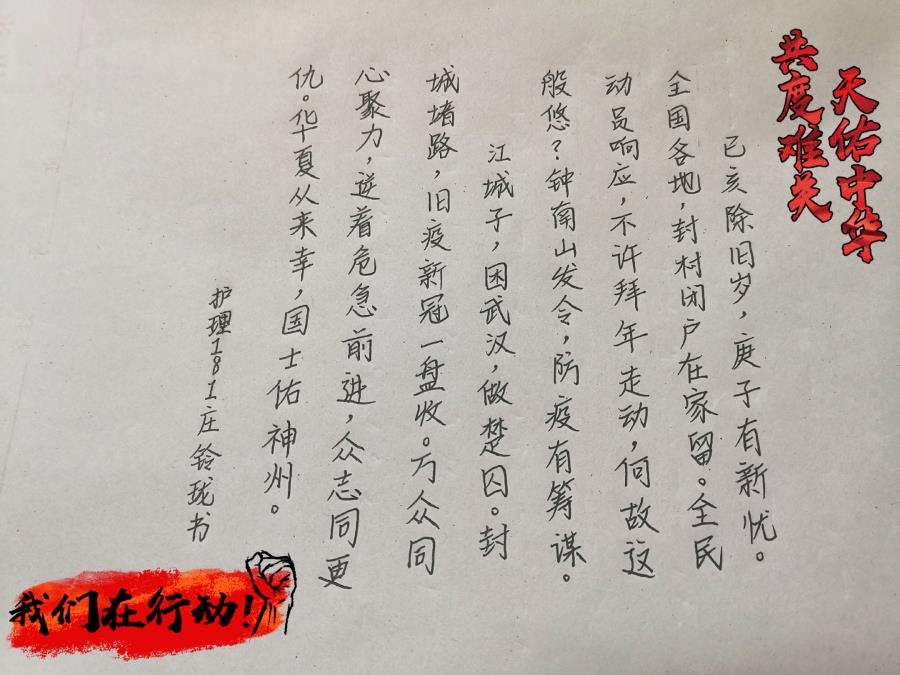 天佑中华
共度难关
已亥除旧岁，庚子有新忧。
全国各地，封村闭户在家留。全民
动员响应，不许拜年走动，何故这
般悠？钟南山发令，防疫有筹谋。
江城子，困武汉，做楚囚。封
城堵路，旧疫新冠一盘收。万众同
心聚力，逆着危急前进，众志同更
仇。华夏从来幸，国士佑神州。
护理181庄铃珑书
我们在行动！